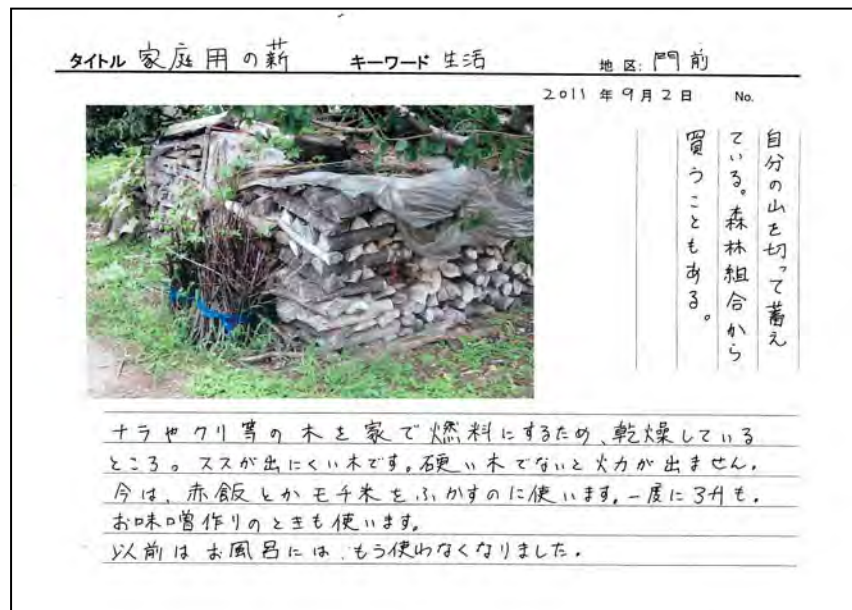 タイトル 家庭用の薪 キーワード 生活 地区: 門前
2011年9月2日 No.
自分の山を切って蓄え
ている。森林組合から
買うこともある。
ナラやクリ等の木を家で燃料にするため、乾燥している
ところ。ススが出にくい木です。硬い木でないと火力が出ません。
今は、赤飯とかモチ米をふかすのに使います。一度に3升も。
お味噌作りのときも使います。
以前はお風呂には、もう使わなくなりました。